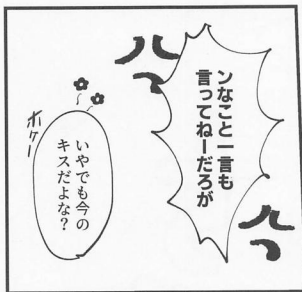 ンなこと一言も
言ってねーだろが
ハッ
ハッ
ポケー
いやでも今の
キスだよな？